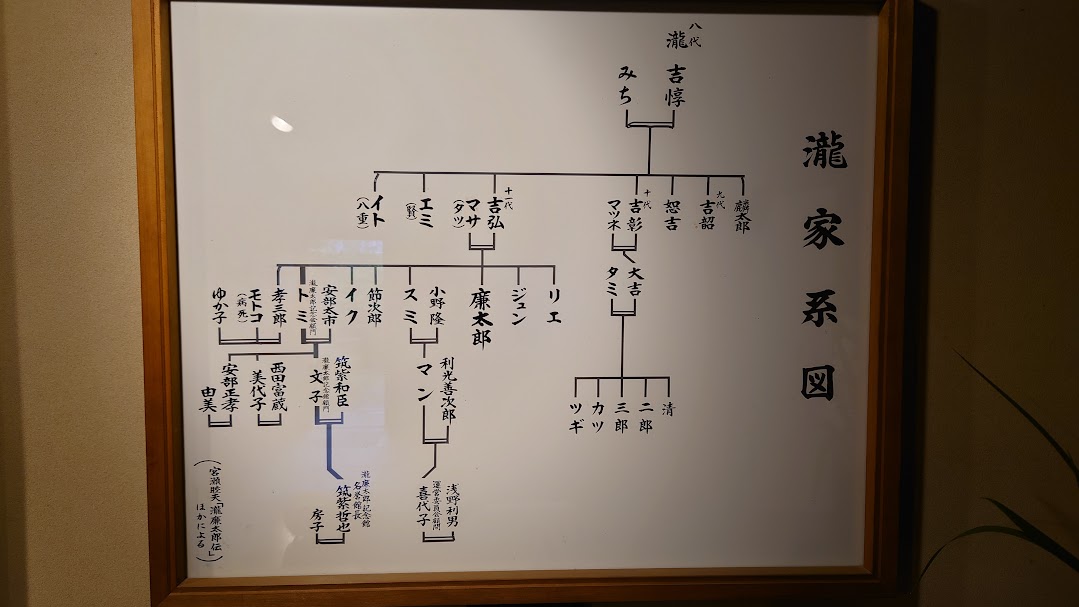 瀧家系図
八代
瀧 吉惇
みち
麟太郎
九代
吉韶
恕吉
十代
吉彰
マツネ
十一代
吉弘
マサ
(タツ)
エミ
(賢)
イト
(八重)
大吉
タミ
清
二郎
三郎
カツ
ツギ
リエ
ジュン
廉太郎
小野隆
スミ
節次郎
イク
安部太市
瀧廉太郎記念館顧問
トミ
孝三郎
モトコ
(病死)
ゆか子
利光善次郎
マン
筑紫和臣
瀧廉太郎記念館顧問
文子
西田富蔵
美代子
安部正孝
由美
浅野利男
運営委員会顧問
喜代子
瀧廉太郎記念館
名誉館長
筑紫哲也
房子
(宮瀬睦夫「瀧廉太郎伝」
ほかによる)